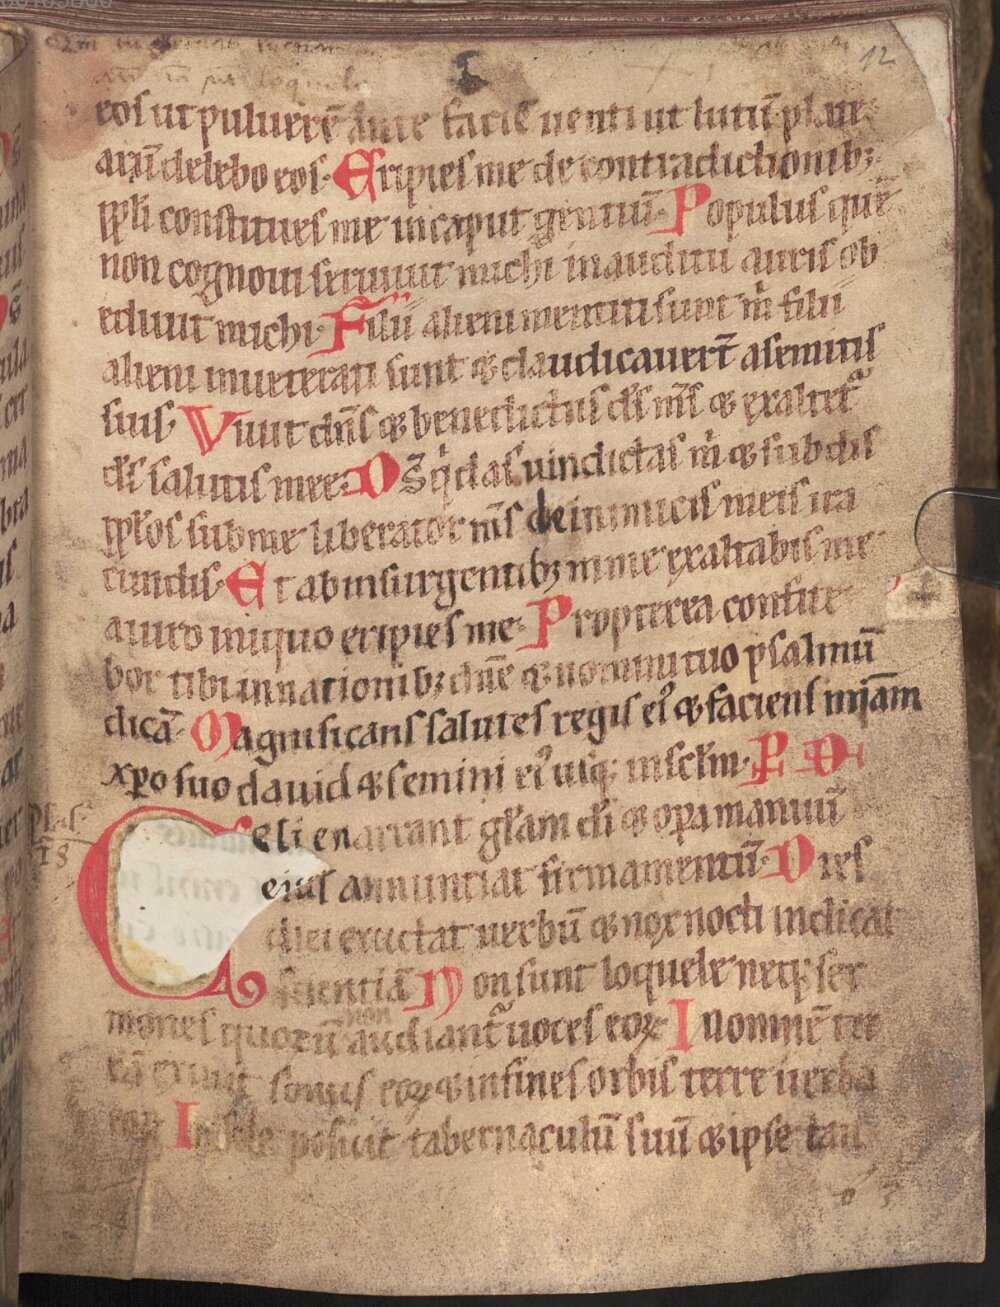 12
eos ut puluerē ante faciē uenti ut lutū plate
arū delebo eos. Eripies me de contradictionibꝫ
ppli constitues me in caput gentiū. Populus quē
non cognoui seruiuit michi in auditu auris ob
ediuit michi. Filii alieni mentiti sunt m̍ filii
alieni inueterati sunt & claudicauert̄ a semitis
suis. Viuit dn̄s & benedictus ds̄ ms̄ & exaltet᷑
ds̄ salutis mee. Ds̄ q̍ das uindictas m̍ & subdis
pplos sub me liberator ms̄ de inimicis meis ira
cundis. Et ab insurgentibꝫ in me exaltabis me
a uiro iniquo eripies me. Propterea confite
bor tibi in nationibꝫ dn̄e & nomini tuo psalmū
dicā. Magnificans salutes regis ei᷒ & faciens mīam
xp̄o suo dauid & semini ei᷒ usqꝫ in sclm̄. P D
Celi enarrant glam̄ di̅ & opa manuū
Ps
18
eius annuntiat firmamentū. Dies
diei eructat uerbū & nox nocti indicat
scientiā Non sunt loquele neqꝫ ser
mones quorū non audiant᷑ uoces eoꝝ In omnē ter
rā exiuit sonus eoꝝ & in fines orbis terre uerba
eoꝝ In sole posuit tabernaculū suū & ipse tan